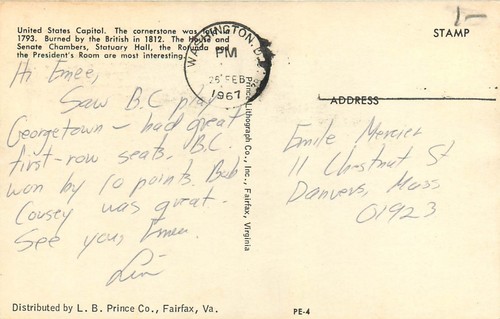 United States Capitol. The cornerstone was laid in
1793. Burned by the British in 1812. The House and
Senate Chambers, Statuary Hall, the Rotunda and
the President's Room are most interesting.
WASHINGTON, D.C.
PM
25 FEB
1967
1-
STAMP
ADDRESS
Hi Emee,
Saw B.C play
Georgetown - had great
first-row seats. B.C.
won by 10 points. Bob
Cousey was great.
See you, Emee.
Emile Mercier
11 Chestnut St
Danvers, Mass
01923
Prince Lithograph Co., Inc., Fairfax, Virginia
Distributed by L. B. Prince Co., Fairfax, Va.
PE-4